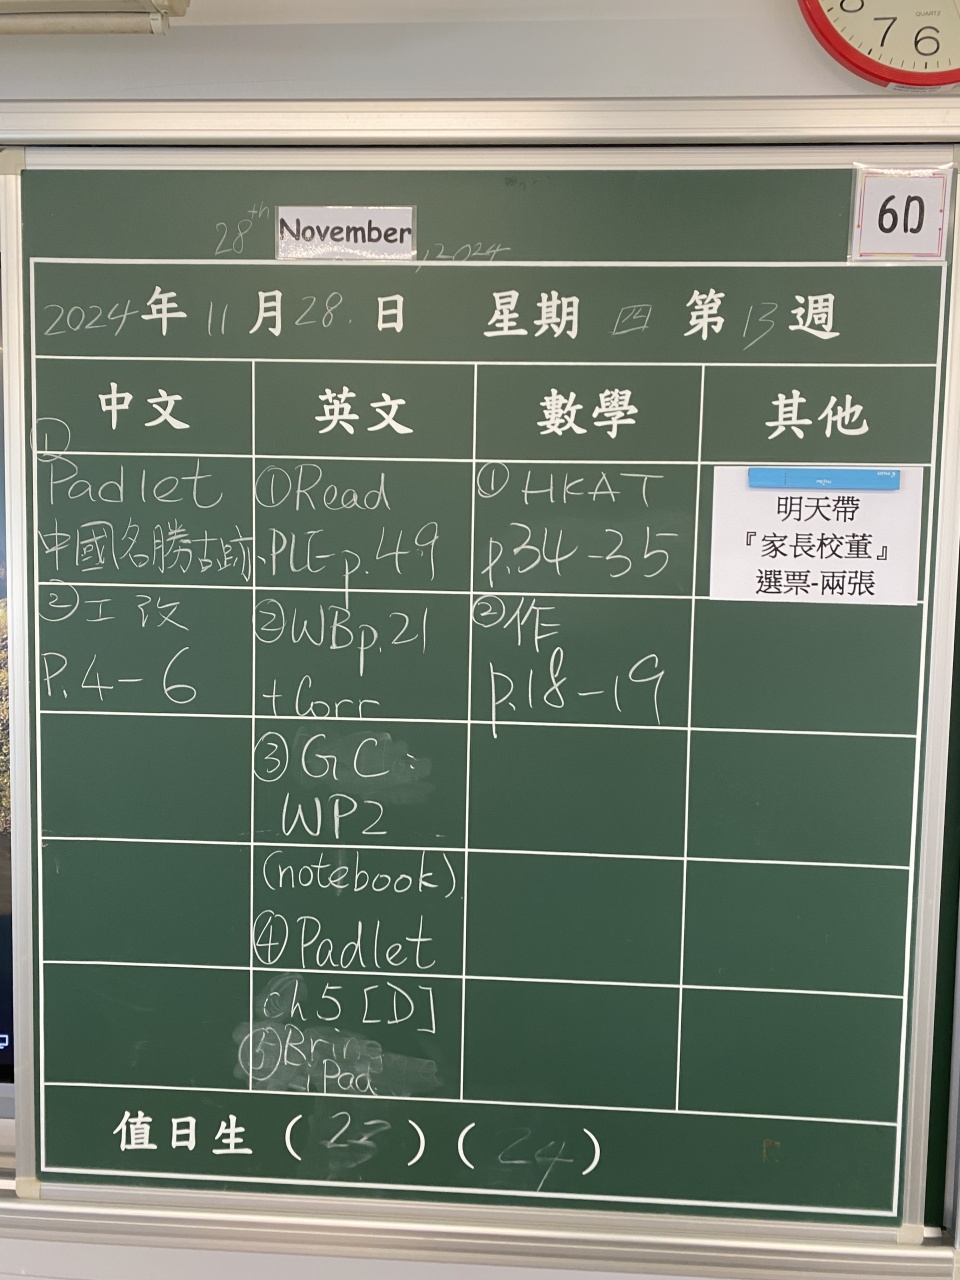 7 6
QUARTZ
6D
28th November, 2024
2024年 11月28.日 星期 四 第 13 週
中文 英文 數學 其他
①
Padlet
中國名勝古跡
②工改
P.4-6
①Read
PLE p.49
②WBp.21
+Corr
③GC:
WP2
(notebook)
④Padlet
ch5 [D]
⑤Bring
iPad
①HKAT
p.34-35
②作
p.18-19
明天帶
『家長校董』
選票-兩張
值日生 ( 23 ) ( 24 )